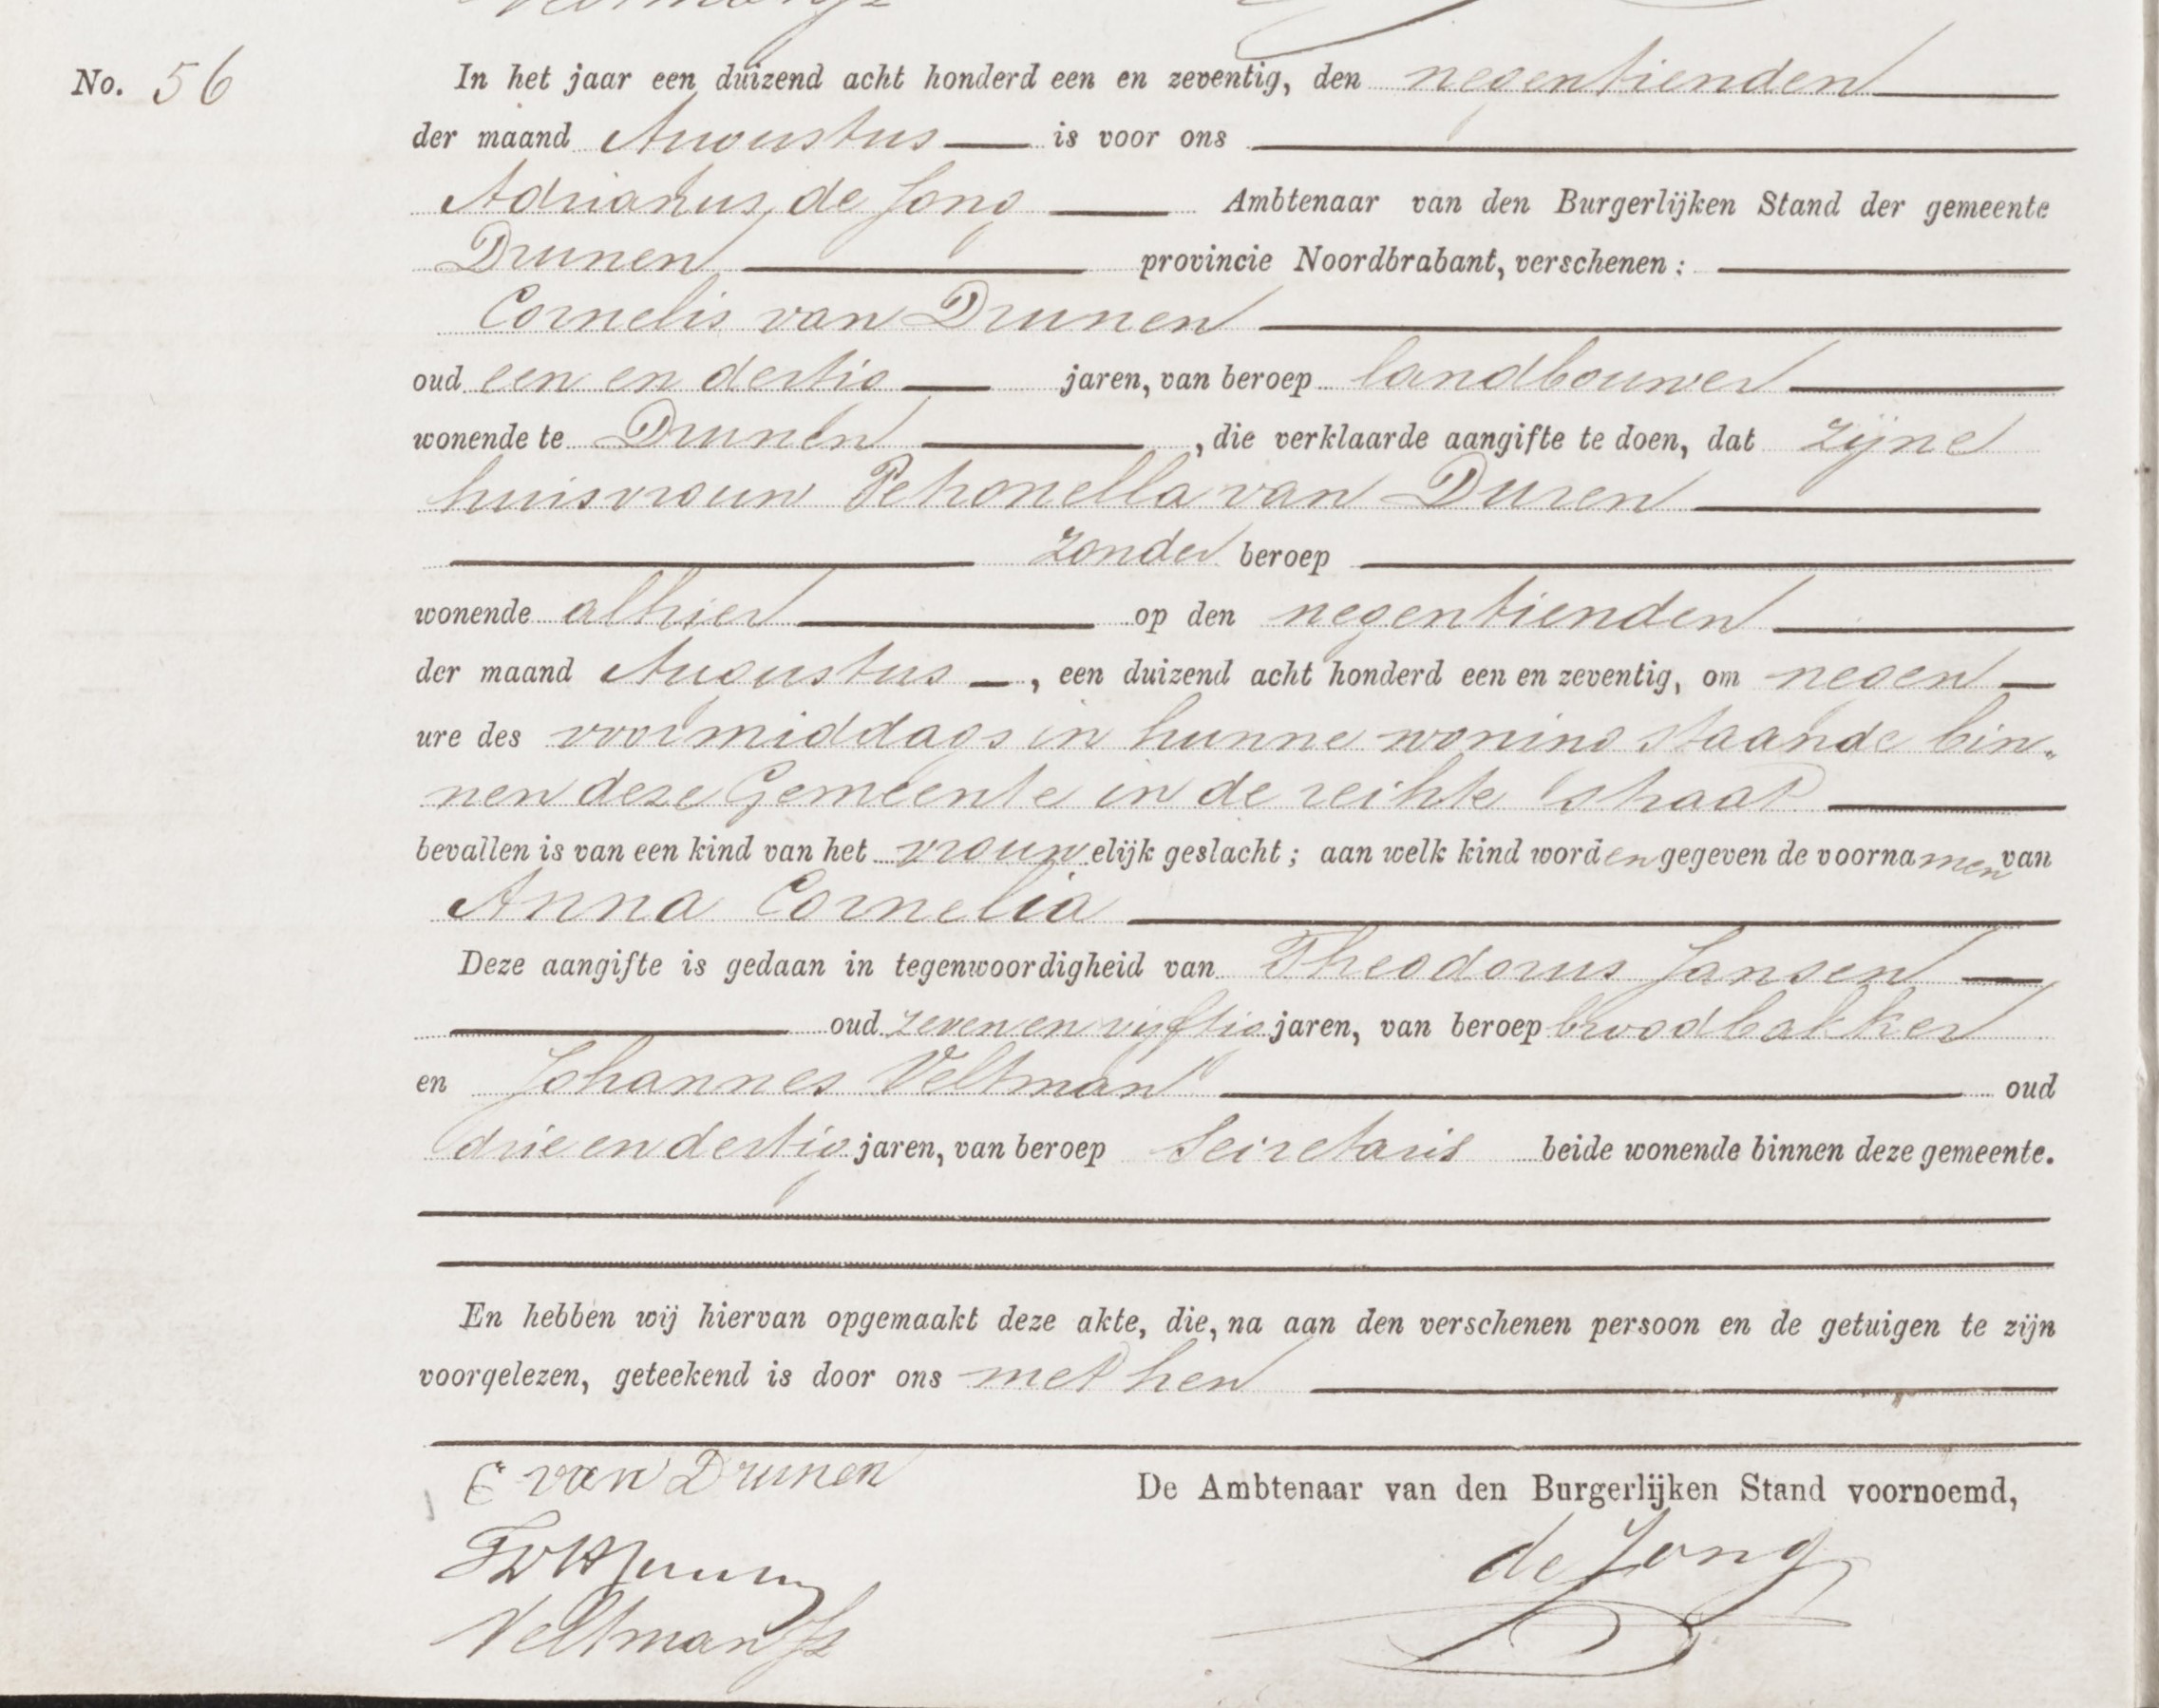 No. 56
In het jaar een duizend acht honderd een en zeventig, den negentienden
der maand Augustus is voor ons
Adrianus de Jong Ambtenaar van den Burgerlijken Stand der gemeente
Drunen provincie Noordbrabant, verschenen:
Cornelis van Drunen
oud een en dertig jaren, van beroep landbouwer
wonende te Drunen, die verklaarde aangifte te doen, dat zijne
huisvrouw Petronella van Duren
zonder beroep
wonende alhier op den negentienden
der maand Augustus, een duizend acht honderd een en zeventig, om negen
ure des voormiddags in hunne woning staande bin„
nen deze Gemeente in de reihte straat
bevallen is van een kind van het vrouwelijk geslacht; aan welk kind worden gegeven de voornamen van
Anna Cornelia
Deze aangifte is gedaan in tegenwoordigheid van Theodorus Jansen
oud zeven en vijftig jaren, van beroep broodbakker
en Johannes Veltman oud
drie en dertig jaren, van beroep Secretaris beide wonende binnen deze gemeente.
En hebben wij hiervan opgemaakt deze akte, die, na aan den verschenen persoon en de getuigen te zijn
voorgelezen, geteekend is door ons met hen
C van Drunen
De Ambtenaar van den Burgerlijken Stand voornoemd,
de Jong
Veltman Jz